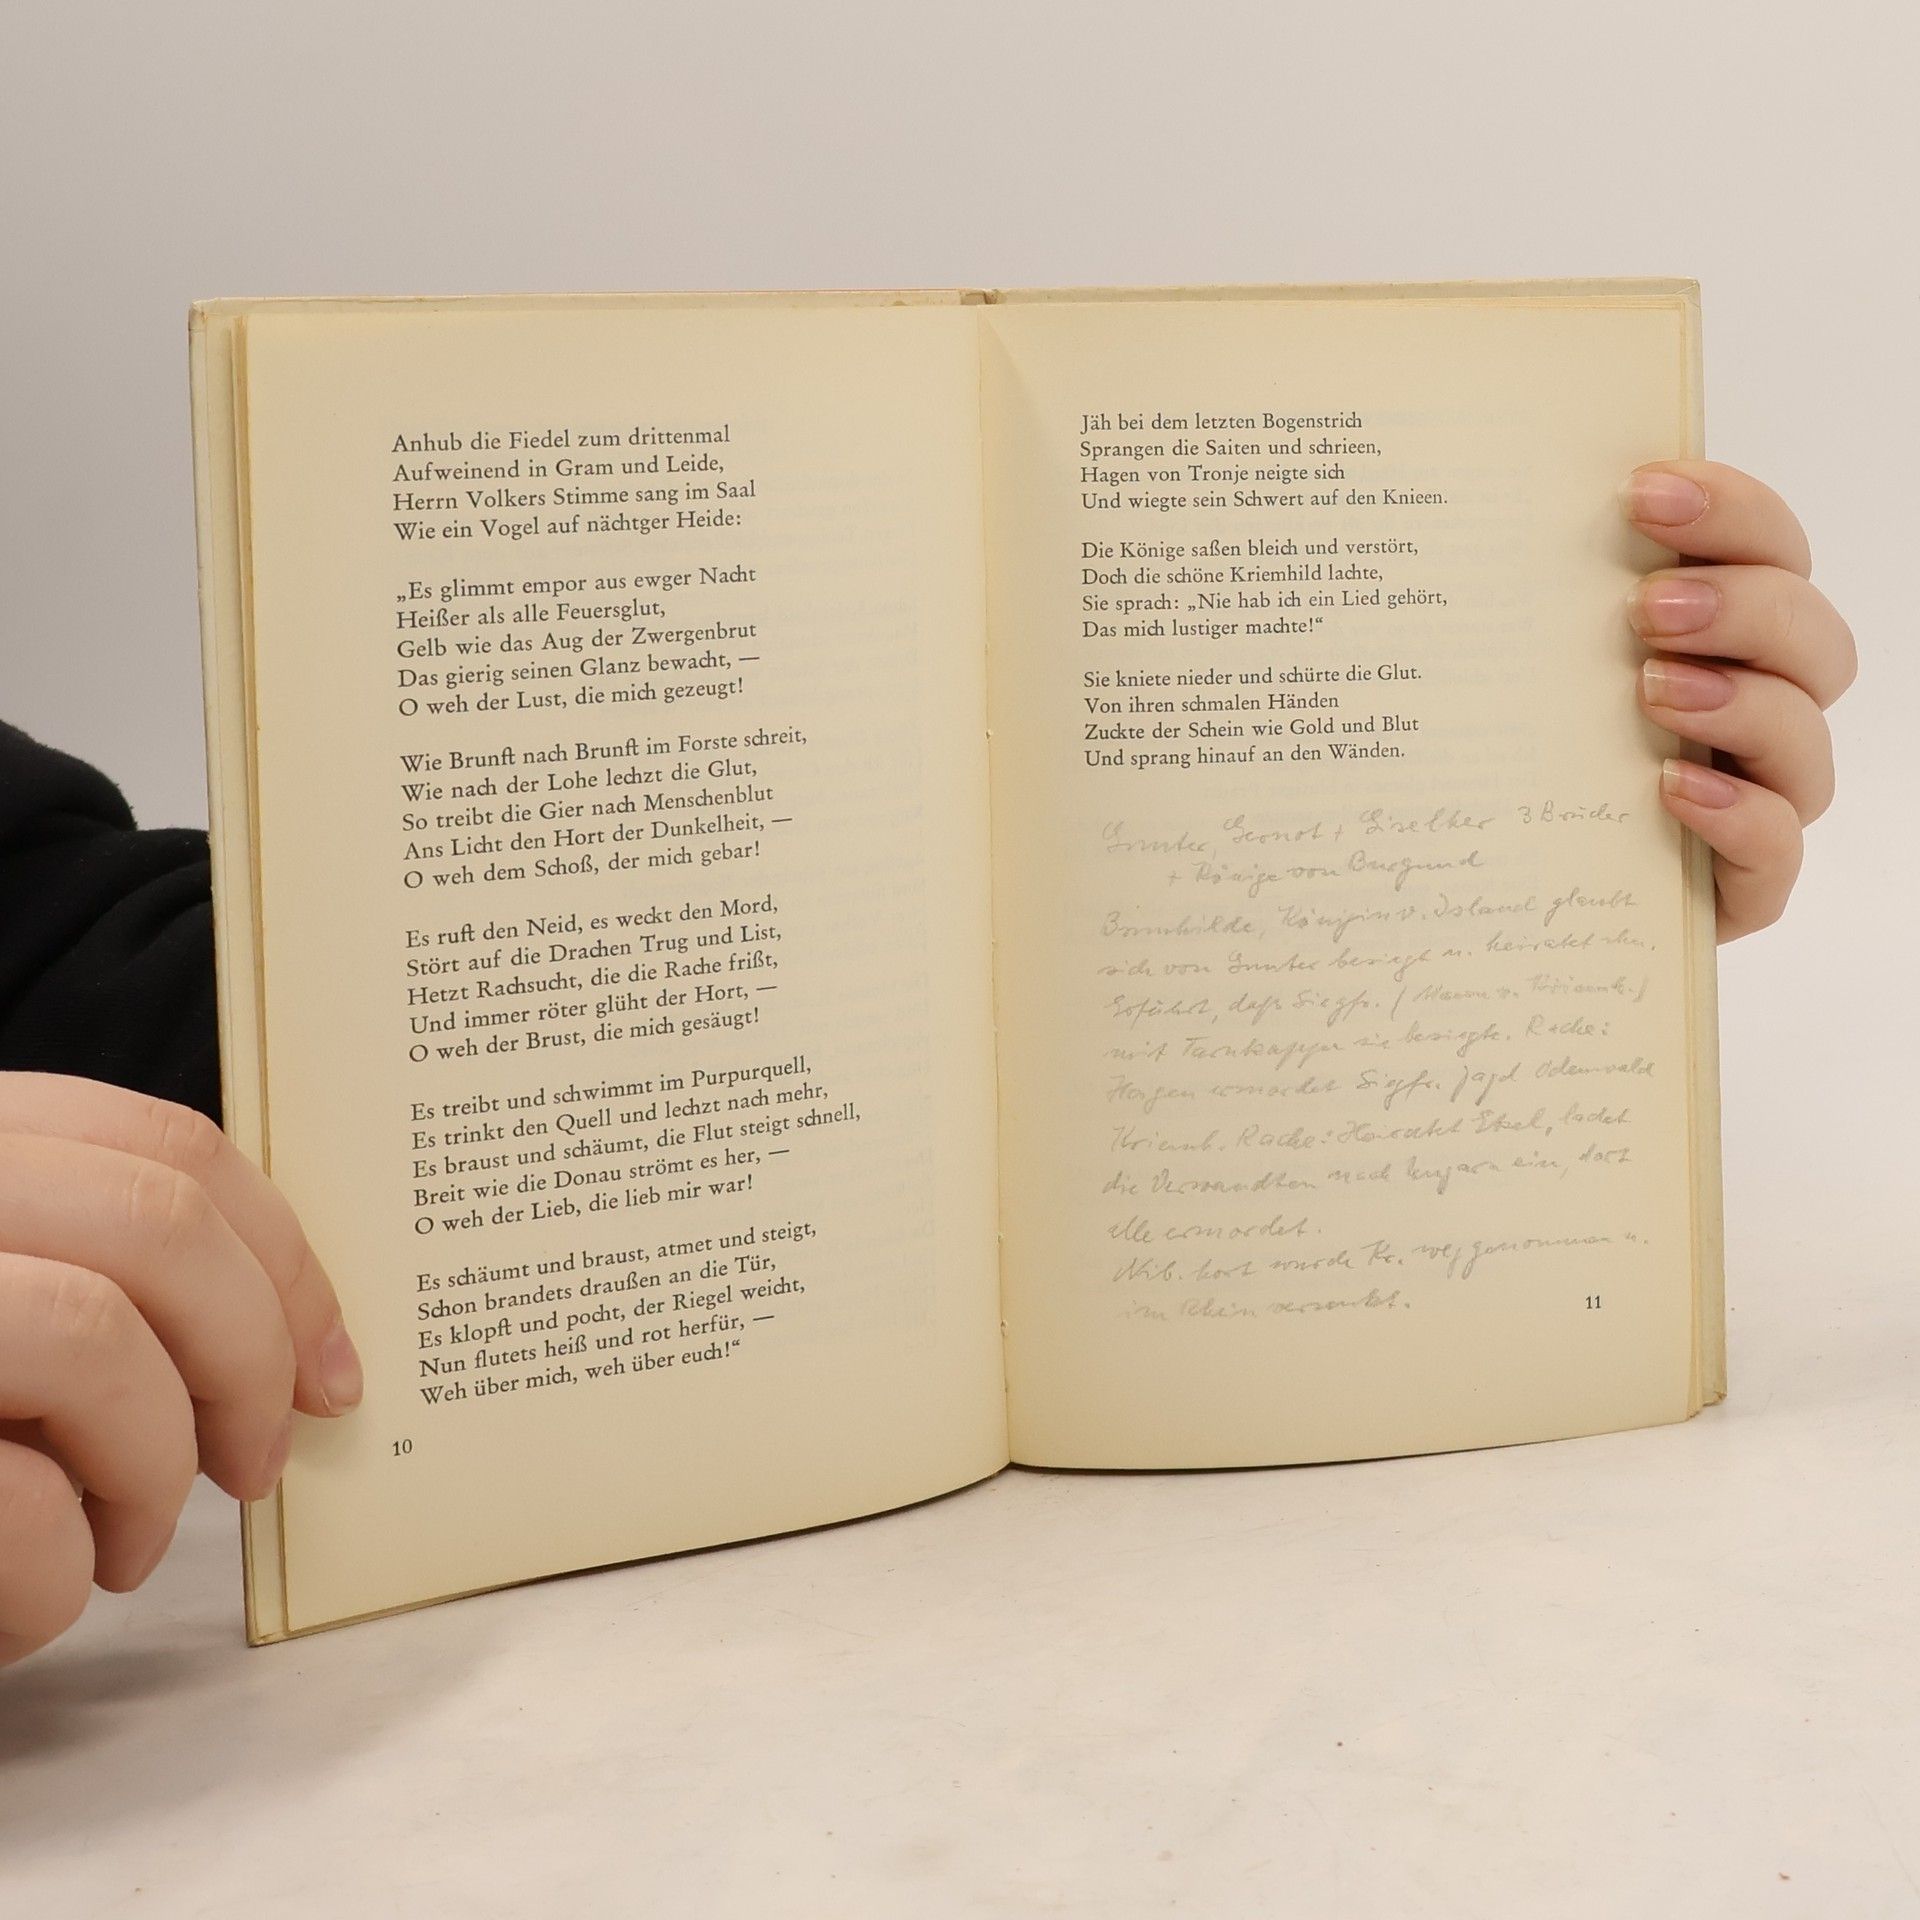 Anhub die Fiedel zum drittenmal
Aufweinend in Gram und Leide,
Herrn Volkers Stimme sang im Saal
Wie ein Vogel auf nächtger Heide:
„Es glimmt empor aus ewger Nacht
Heißer als alle Feuersglut,
Gelb wie das Aug der Zwergenbrut
Das gierig seinen Glanz bewacht, —
O weh der Lust, die mich gezeugt!
Wie Brunft nach Brunft im Forste schreit,
Wie nach der Lohe lechzt die Glut,
So treibt die Gier nach Menschenblut
Ans Licht den Hort der Dunkelheit, —
O weh dem Schoß, der mich gebar!
Es ruft den Neid, es weckt den Mord,
Stört auf die Drachen Trug und List,
Hetzt Rachsucht, die die Rache frißt,
Und immer röter glüht der Hort, —
O weh der Brust, die mich gesäugt!
Es treibt und schwimmt im Purpurquell,
Es trinkt den Quell und lechzt nach mehr,
Es braust und schäumt, die Flut steigt schnell,
Breit wie die Donau strömt es her, —
O weh der Lieb, die lieb mir war!
Es schäumt und braust, atmet und steigt,
Schon brandets draußen an die Tür,
Es klopft und pocht, der Riegel weicht,
Nun flutets heiß und rot herfür, —
Weh über mich, weh über euch!“
10
Jäh bei dem letzten Bogenstrich
Sprangen die Saiten und schrieen,
Hagen von Tronje neigte sich
Und wiegte sein Schwert auf den Knieen.
Die Könige saßen bleich und verstört,
Doch die schöne Kriemhild lachte,
Sie sprach: „Nie hab ich ein Lied gehört,
Das mich lustiger machte!“
Sie kniete nieder und schürte die Glut.
Von ihren schmalen Händen
Zuckte der Schein wie Gold und Blut
Und sprang hinauf an den Wänden.
Gunter, Gernot + Giselher 3 Brüder
+ Könige von Burgund
Brunhilde, Königin v. Island glaubt
sich von Gunter besiegt u. heiratet ihn.
Erfährt, daß Siegfr. (Mann v. Kriemh.)
mit Tarnkappe sie besiegte. Rache:
Hagen ermordet Siegfr. Jagd Odenwald
Kriemh. Rache: Heiratet Etzel, ladet
die Verwandten nach Ungarn ein, dort
alle ermordet.
Nib. hort wurde Kr. weggenommen u.
im Rhein versenkt.
11